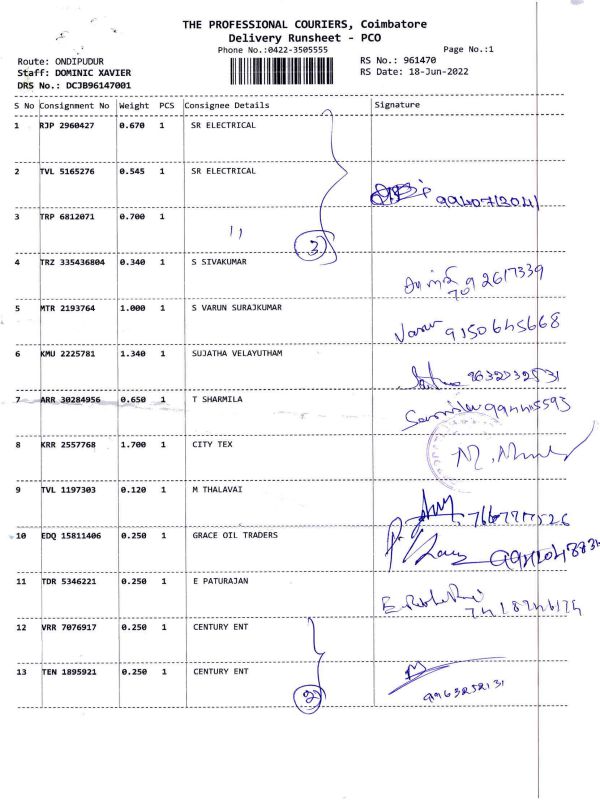 THE PROFESSIONAL COURIERS, Coimbatore
Delivery Runsheet - PCO
Phone No.:0422-3505555
Page No.:1
Route: ONDIPUDUR
Staff: DOMINIC XAVIER
DRS No.: DCJB96147001
RS No.: 961470
RS Date: 18-Jun-2022
S No Consignment No Weight PCS Consignee Details Signature
1 RJP 2960427 0.670 1 SR ELECTRICAL
2 TVL 5165276 0.545 1 SR ELECTRICAL
3 TRP 6812071 0.700 1 ,,
3
4 TRZ 335436804 0.340 1 S SIVAKUMAR
709 2617339
5 MTR 2193764 1.000 1 S VARUN SURAJKUMAR
Varun 9150645668
6 KMU 2225781 1.340 1 SUJATHA VELAYUTHAM
7 ARR 30284956 0.650 1 T SHARMILA
8 KRR 2557768 1.700 1 CITY TEX
9 TVL 1197303 0.120 1 M THALAVAI
10 EDQ 15811406 0.250 1 GRACE OIL TRADERS
11 TDR 5346221 0.250 1 E PATURAJAN
12 VRR 7076917 0.250 1 CENTURY ENT
13 TEN 1895921 0.250 1 CENTURY ENT
2
9963252131